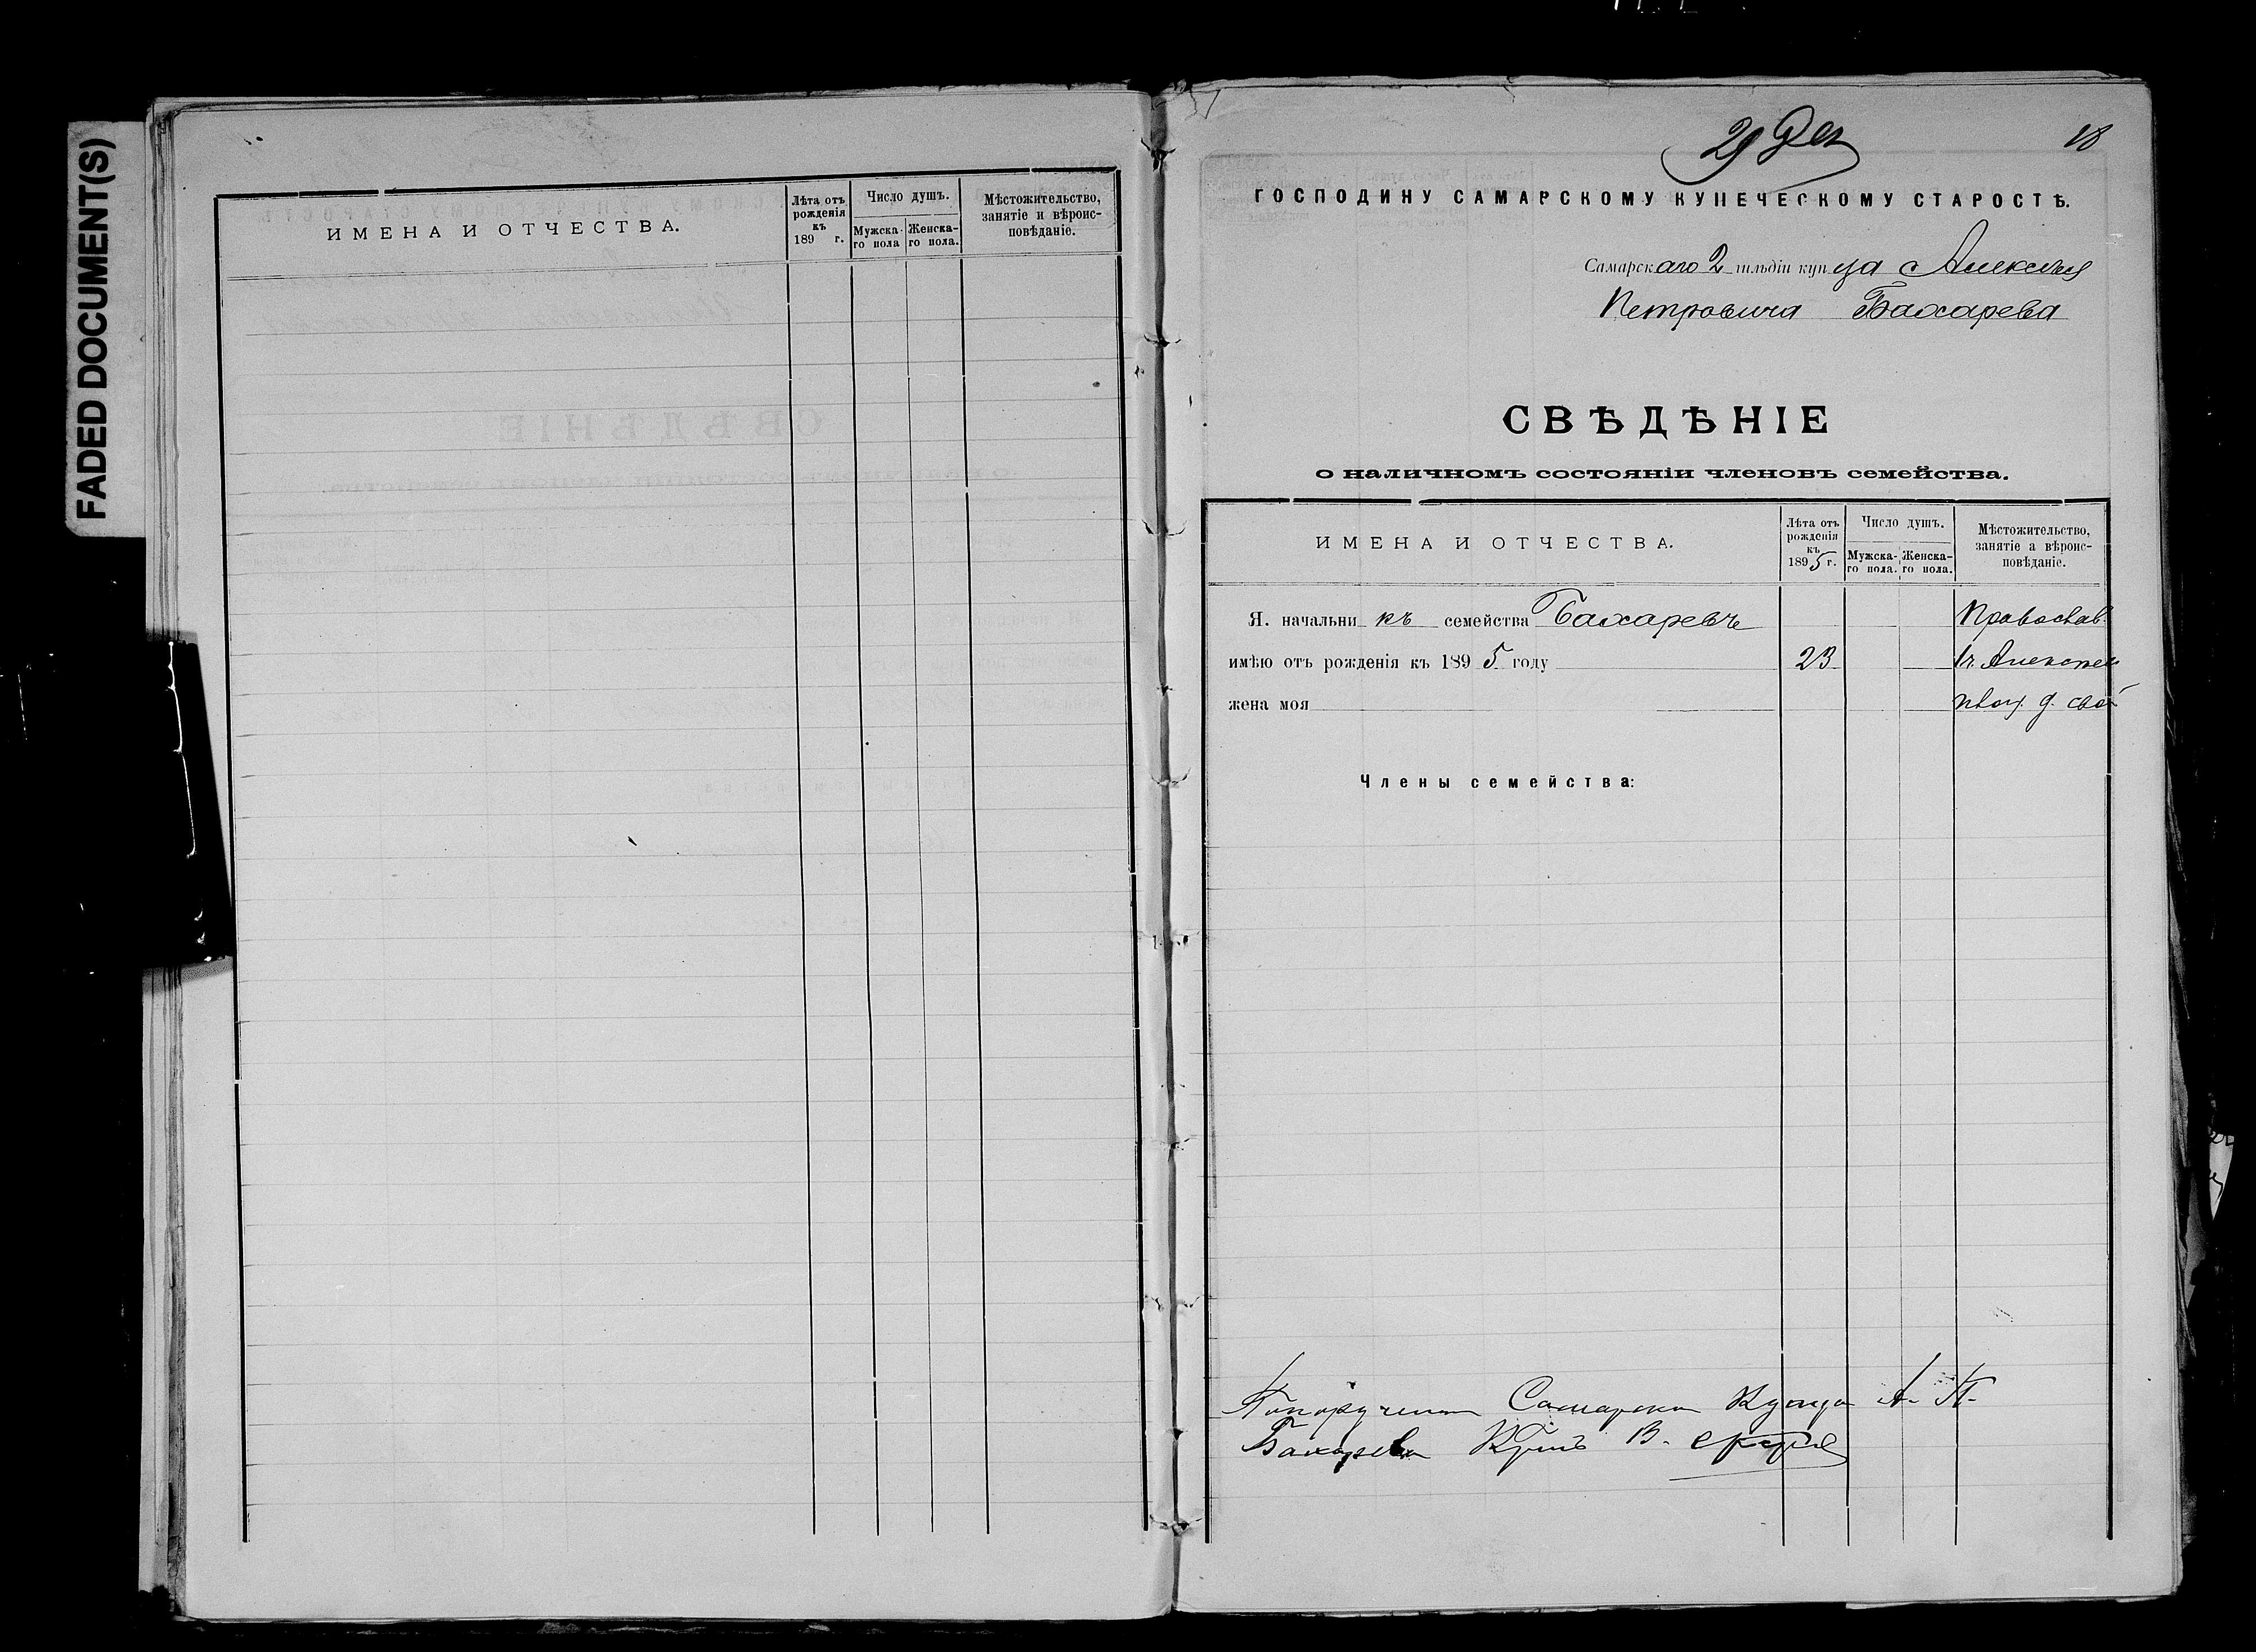 FADED DOCUMENT(S)
ИМЕНА И ОТЧЕСТВА.
Лѣта отъ рожденія къ 189 г.
Число душъ.
Мужска-го пола
Женска-го пола.
Мѣстожительство, занятіе и вѣроис-повѣданіе.
29 Дек
18
ГОСПОДИНУ САМАРСКОМУ КУПЕЧЕСКОМУ СТАРОСТѢ.
Самарскаго 2 гильдіи купца Алексѣя
Петровича Бахарева
СВѢДѢНІЕ
о наличномъ состояніи членовъ семейства.
ИМЕНА И ОТЧЕСТВА.
Лѣта отъ рожденія къ 1895 г.
Число душъ.
Мужска-го пола.
Женска-го пола.
Мѣстожительство, занятіе а вѣроис-повѣданіе.
Я. начальникъ семейства Бахаревъ Православ.
имѣю отъ рожденія къ 1895 году 23
жена моя д.
Члены семейства:
Самарско Купца А. П.
Бахарева В.